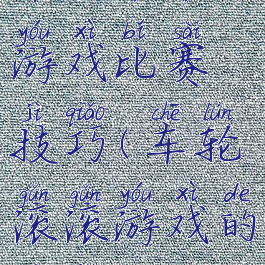 yóu xì bǐ sài
游戏比赛
jì qiǎo ( chē lún
技巧(车轮
gǔn gǔn yóu xì de
滚滚游戏的